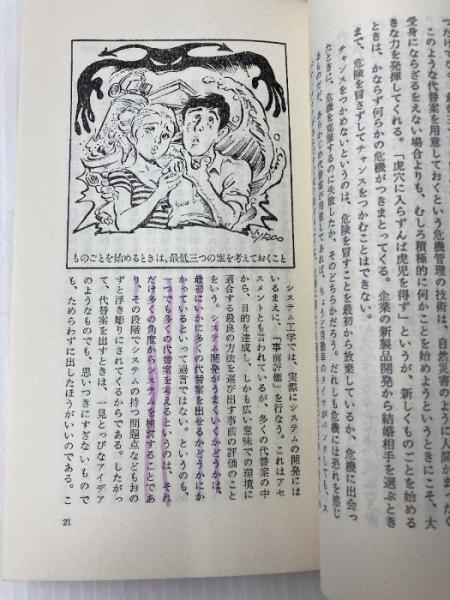 このような代替案を用意しておくという危機管理の技術は、自然災害のように人間がまったく
受身にならざるをえない場合よりも、むしろ積極的に何かことを始めようというときにこそ、大
きな力を発揮してくれる。「虎穴に入らずんば虎児を得ず」というが、新しくものごとを始める
ときは、かならず何らかの危機がつきまとってくる。企業の新製品開発から結婚相手を選ぶとき
まで、危険を冒さずしてチャンスをつかむことはできない。
チャンスをつかめないというのは、危険を冒すことを最初から放棄しているか、危機に出会っ
たときに、危機を克服するのに失敗したか、そのどちらかだろう。だれしも危機には恐れを感じ
ものごとを始めるときは、最低三つの案を考えておくこと
システム工学では、実際にシステムの開発には
いるまえに、「事前評価」を行なう。これはアセ
スメントとも言われているが、多くの代替案の中
から、目的を達成し、しかも広い意味での環境に
適合する最良の方法を選び出す事前の評価のこと
をいう。システム開発がうまくいくかどうかは、
最初にいかに多くの代替案を出せるかどうかにか
かっているといって過言ではない。というのも、
一つでも多くの代替案を考えるというのは、それ
だけ多くの角度からシステムを検討することであ
り、その段階でシステムの持つ問題点などもおの
ずと浮き彫りにされてくるからである。したがっ
て、代替案を出すときは、一見とっぴなアイデア
のようなものでも、思いつきにすぎないもので
も、ためらわずに出したほうがいいのである。こ
21